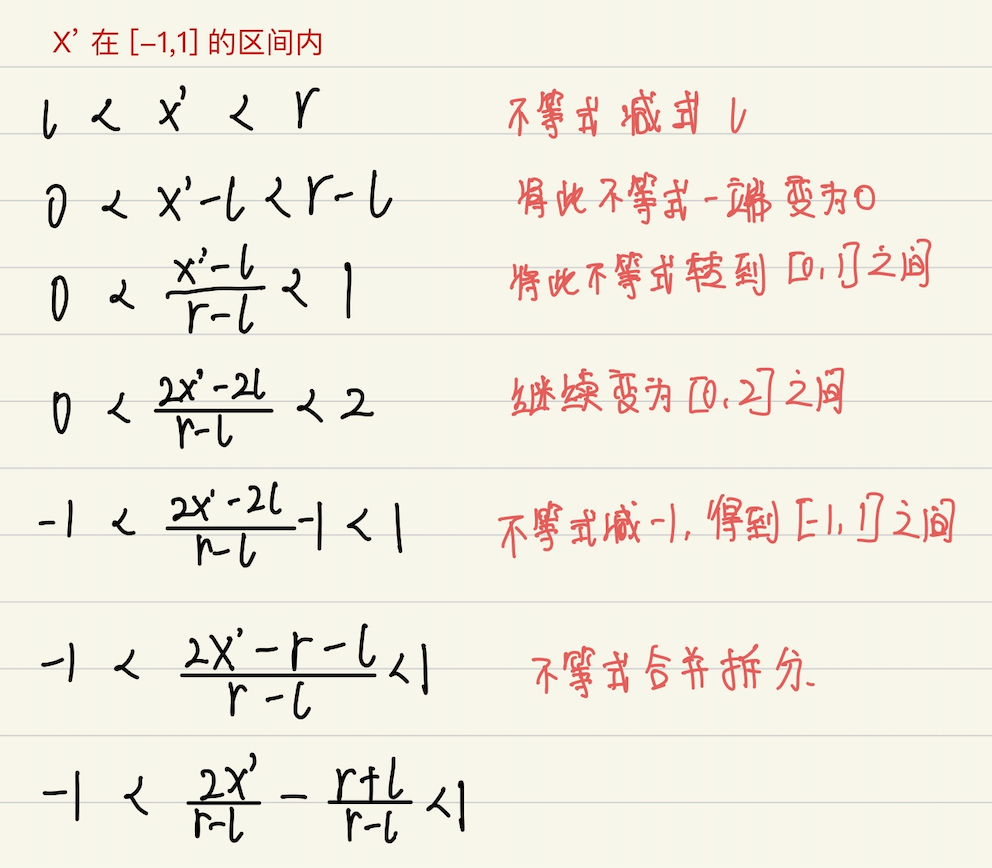 X’ 在 [-1,1] 的区间内
l < x' < r 不等式减式 l
0 < x'-l < r-l 将此不等式一端变为0
0 < \frac{x'-l}{r-l} < 1 将此不等式转到 [0,1]之间
0 < \frac{2x'-2l}{r-l} < 2 继续变为[0,2]之间
-1 < \frac{2x'-2l}{r-l}-1 < 1 不等式减-1, 得到[-1,1]之间
-1 < \frac{2x'-r-l}{r-l} < 1 不等式合并拆分.
-1 < \frac{2x'}{r-l} - \frac{r+l}{r-l} < 1